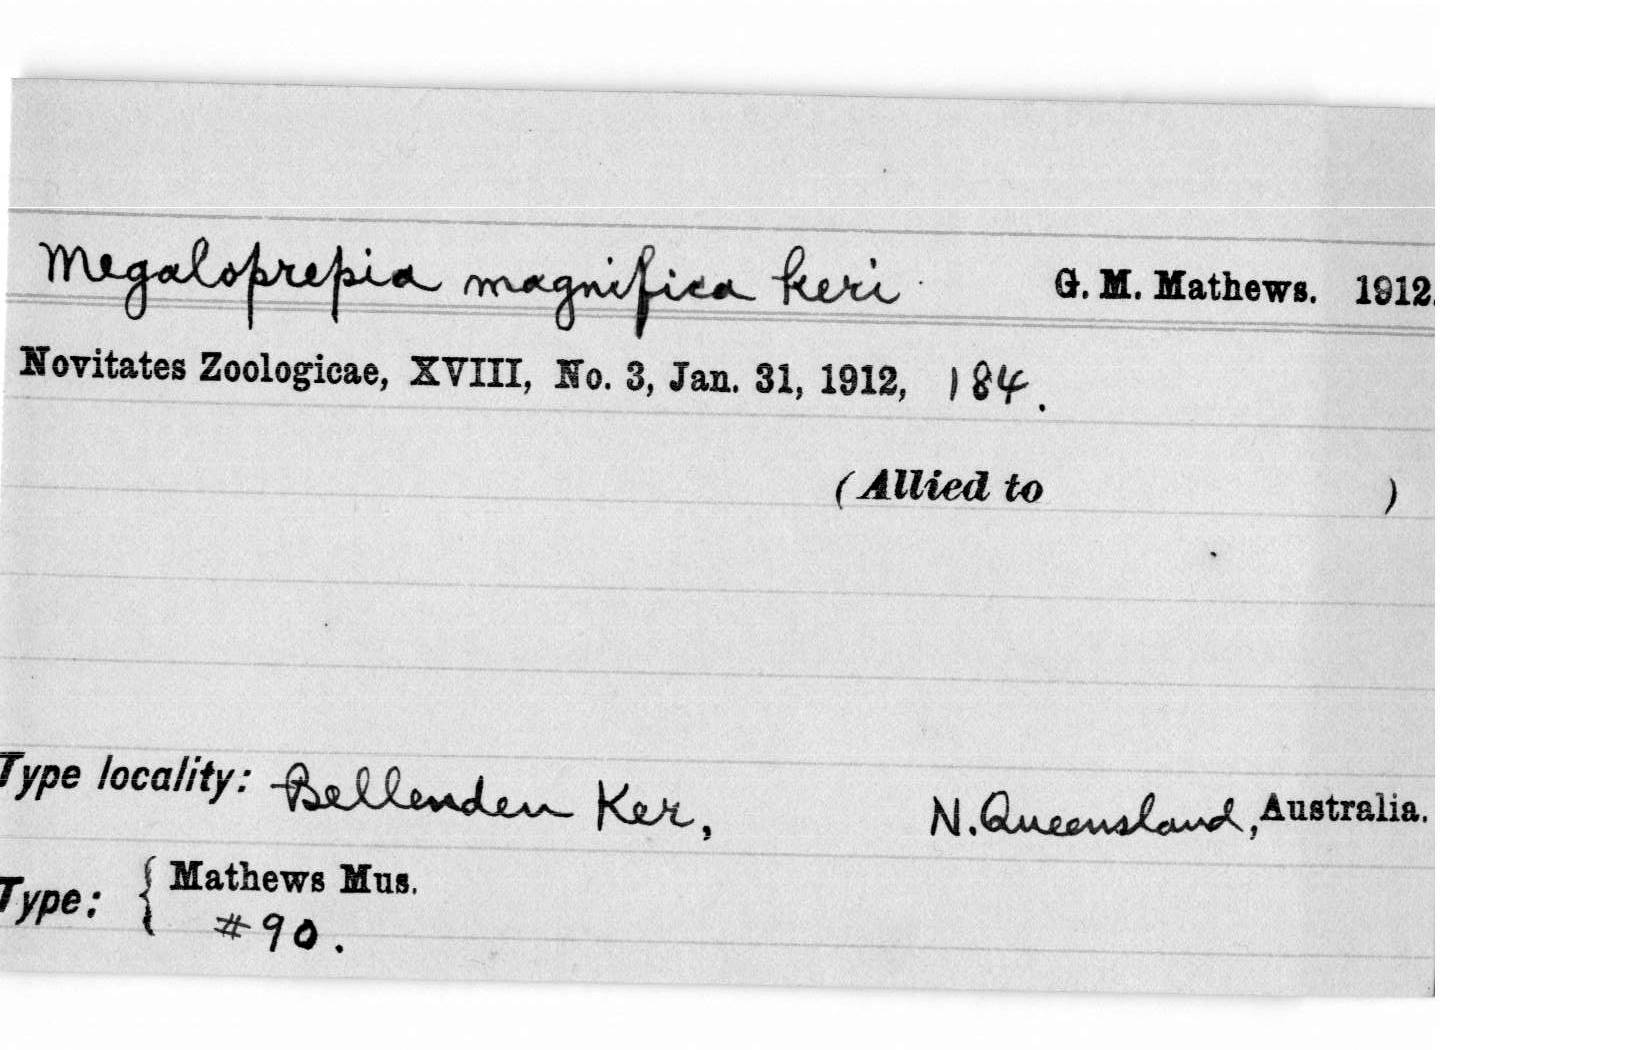 Megaloprepia magnifica keri G. M. Mathews. 1912.
Novitates Zoologicae, XVIII, No. 3, Jan. 31, 1912, 184.
(Allied to )
Type locality: Bellenden Ker, N. Queensland, Australia.
Type: { Mathews Mus.
#90.